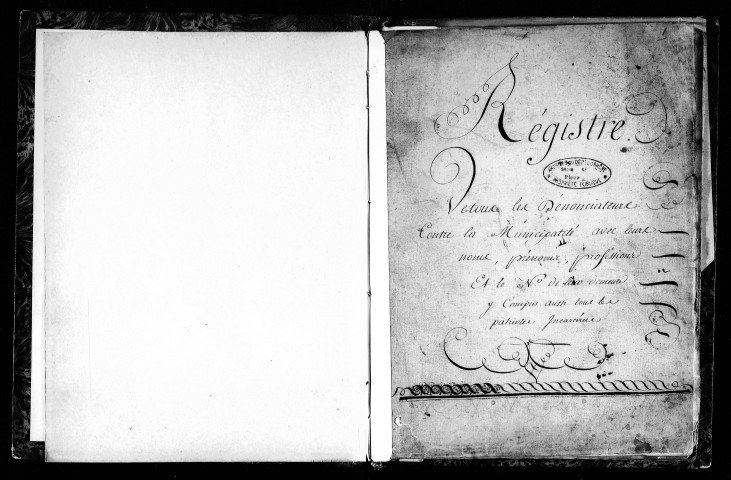 Régistre.
PROPRIÉTÉ PUBLIQUE
De tous les Dénonciateurs
Contre la Municipalité avec leurs
noms, prénoms, proféssions
Et le N.o de demeure
y Compris aussi tous les
patriotes Incarcérés